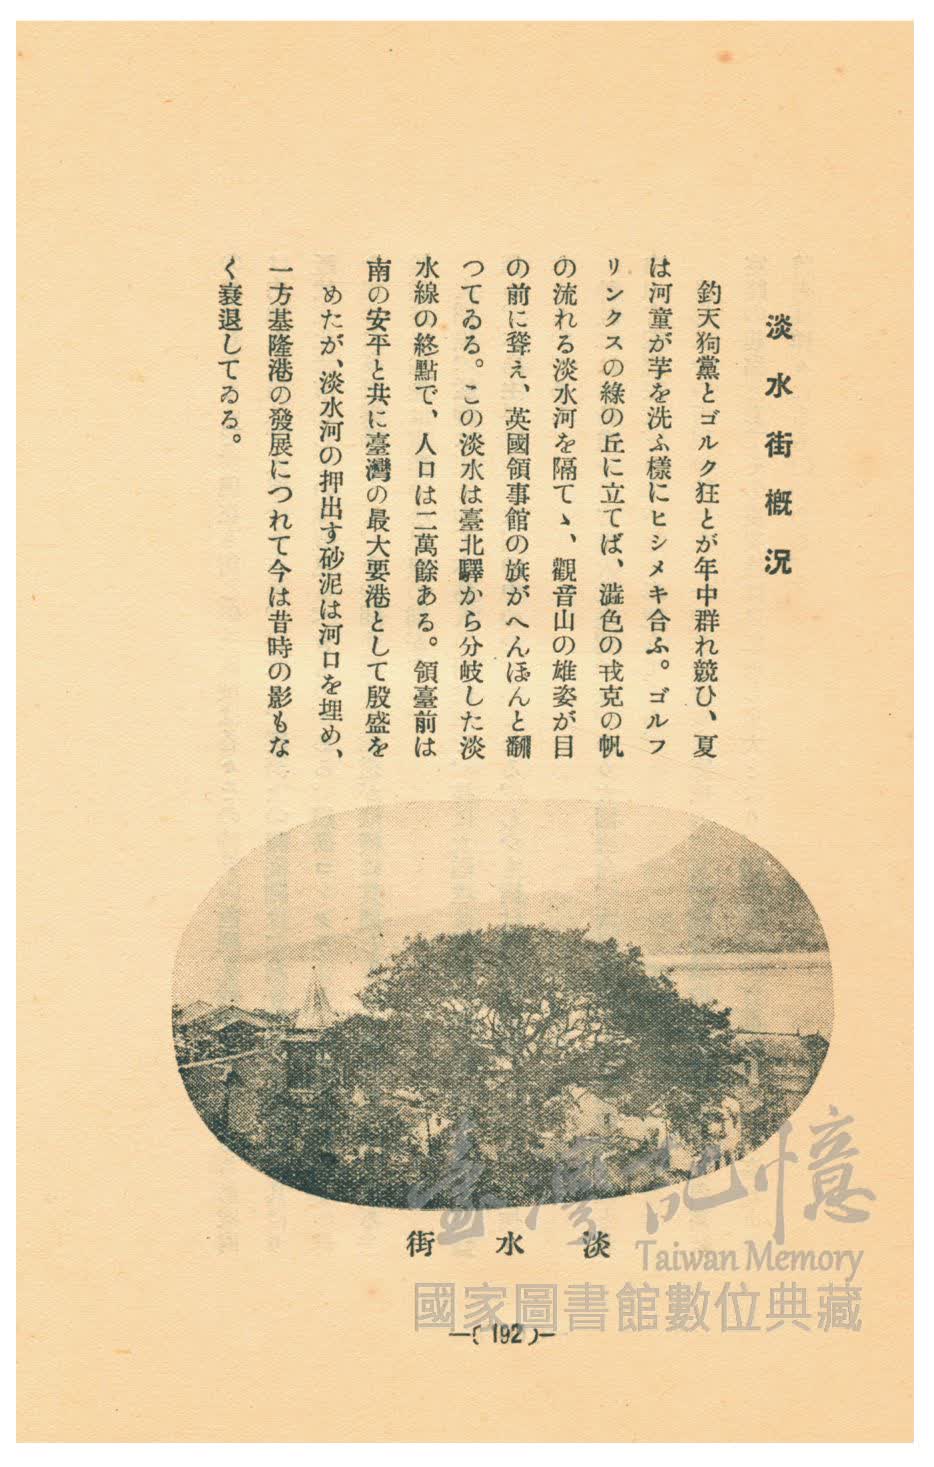 淡水街槪況
釣天狗黨とゴルク狂とが年中群れ競ひ、夏
は河童が芋を洗ふ樣にヒシメキ合ふ。ゴルフ
リンクスの綠の丘に立てば、澁色の戎克の帆
の流れる淡水河を隔てゝ、觀音山の雄姿が目
の前に聳え、英國領事館の旗がへんぽんと飜
つてゐる。この淡水は臺北驛から分岐した淡
水線の終點で、人口は二萬餘ある。領臺前は
南の安平と共に臺灣の最大要港として殷盛を
めたが、淡水河の押出す砂泥は河口を埋め、
一方基隆港の發展につれて今は昔時の影もな
く衰退してゐる。
淡水街
臺灣記憶
Taiwan Memory
國家圖書館數位典藏
—( 192 )—